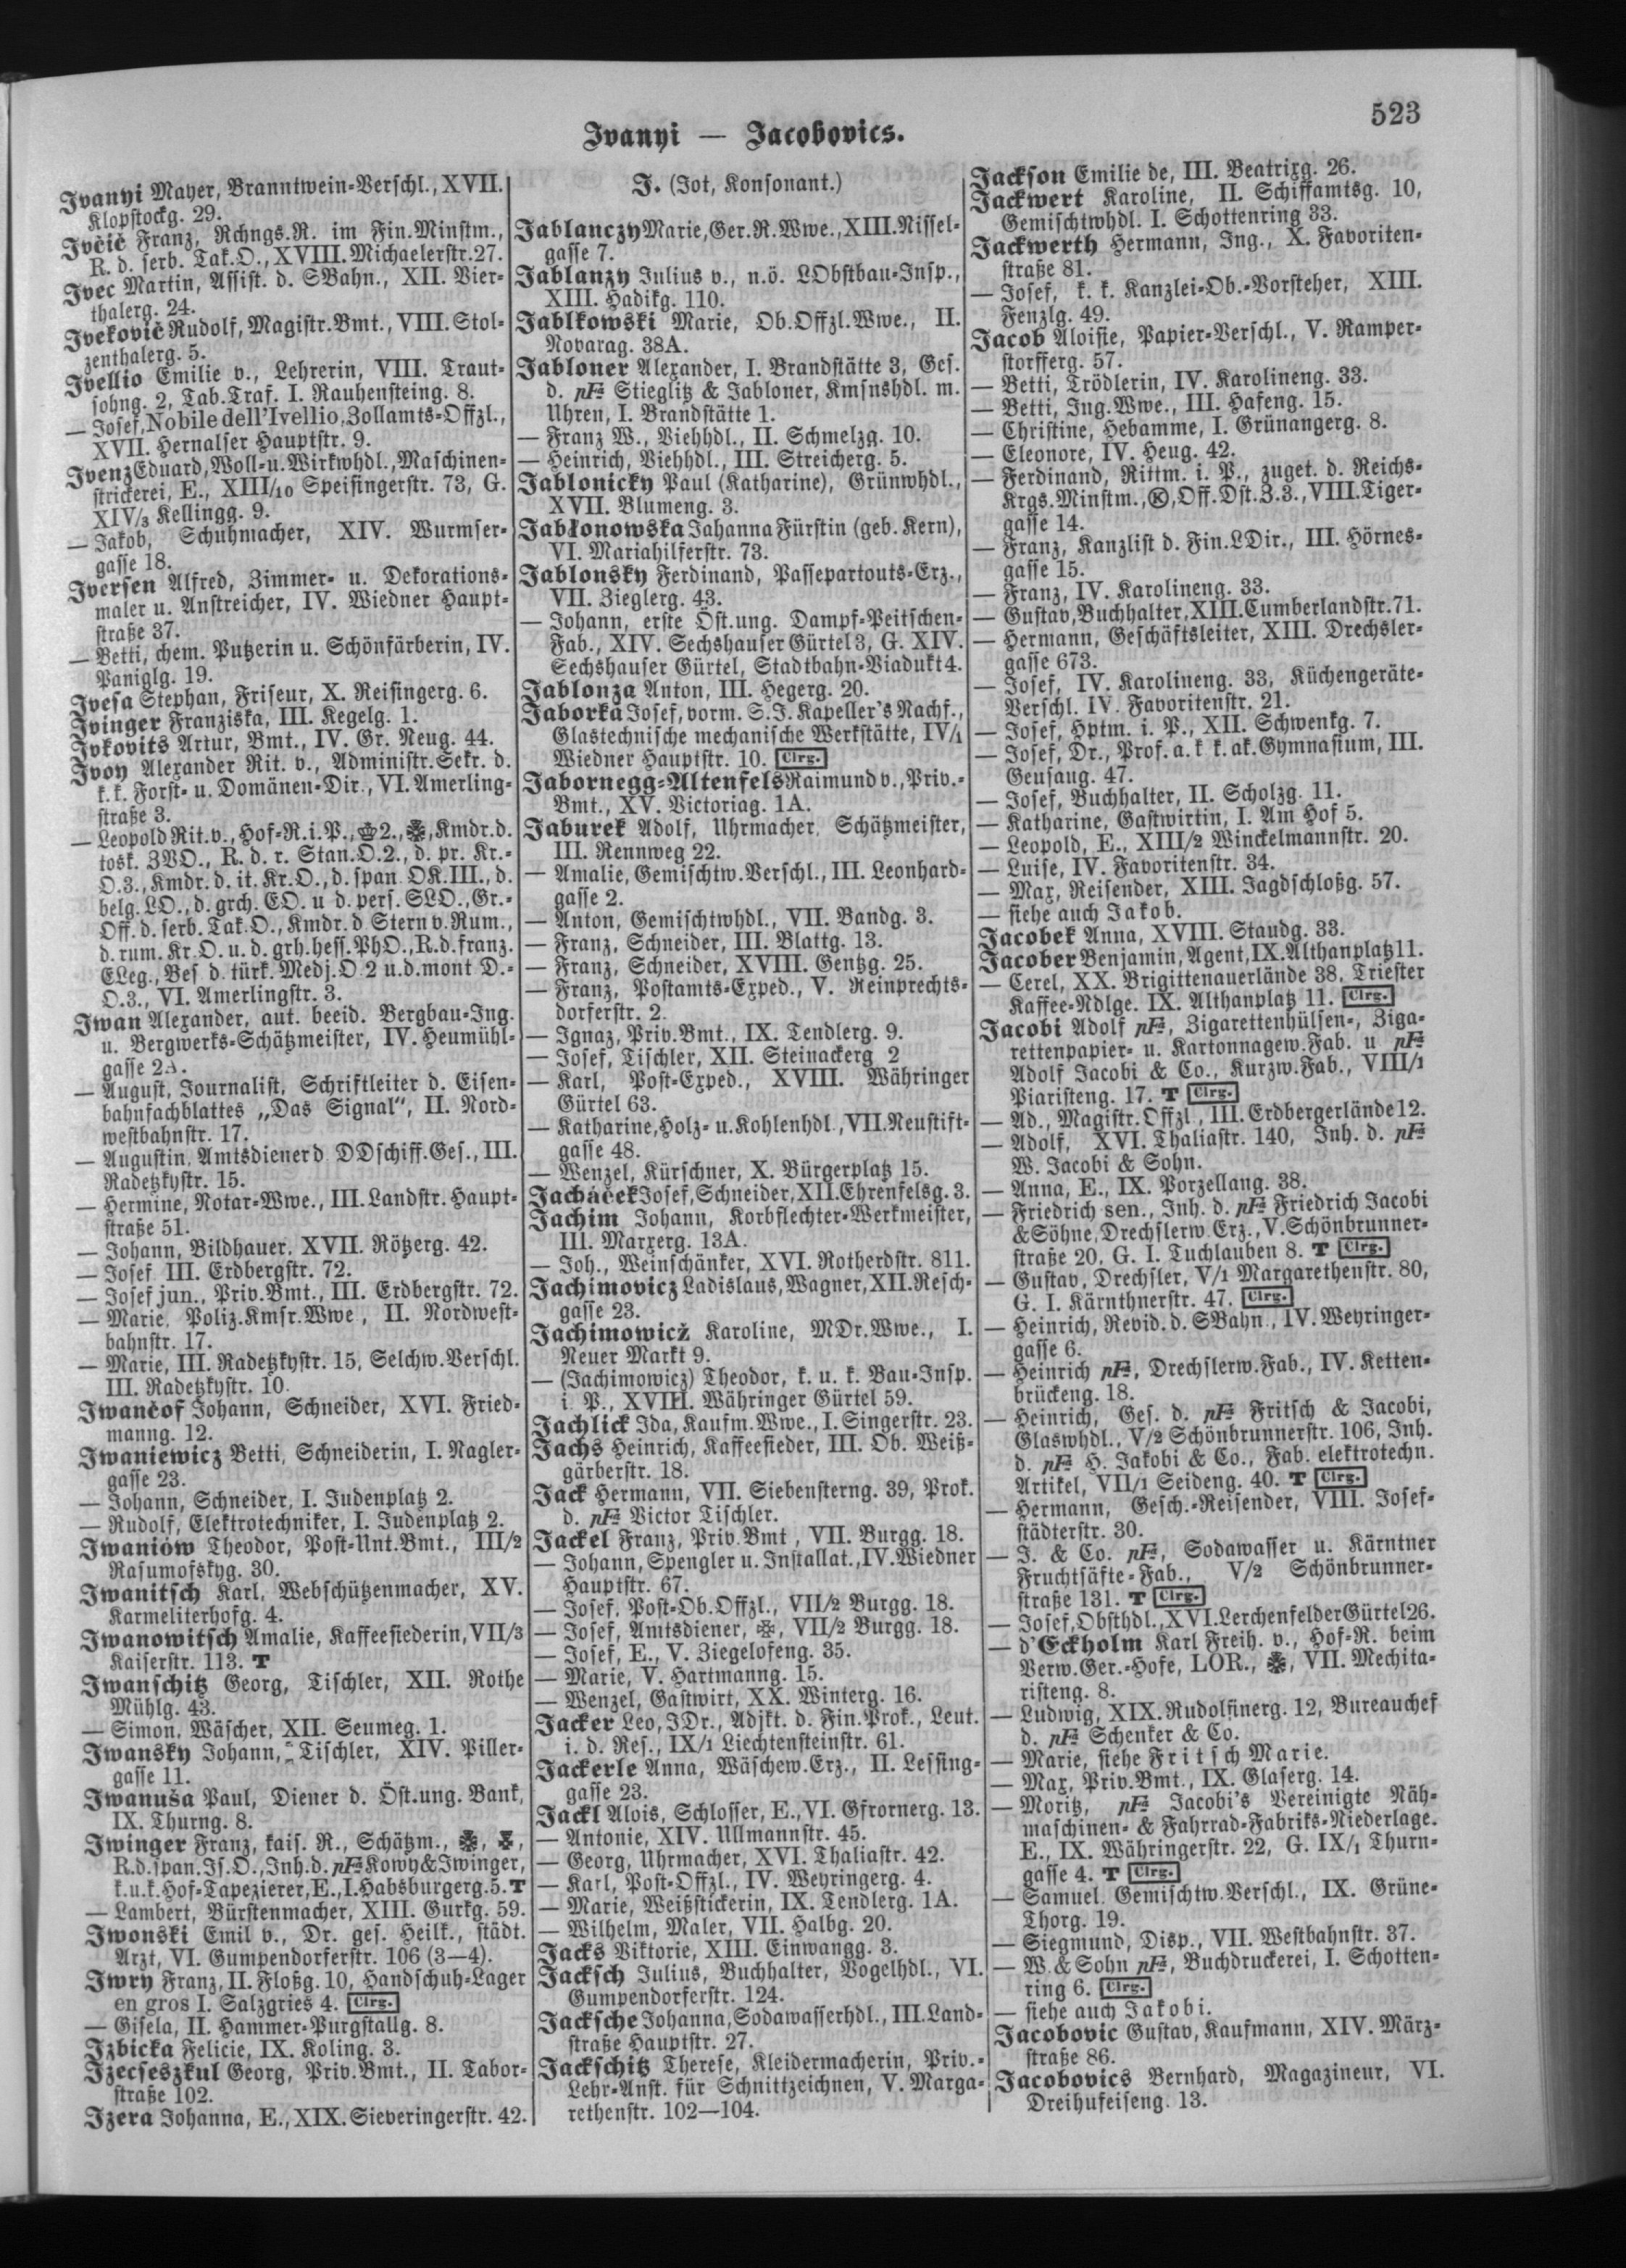 523
Ivanyi — Jacobovics.
Ivanyi Mayer, Branntwein-Verschl., XVII.
Klopstockg. 29.
Ivčić Franz, Rchngs.R. im Fin.Minstm.,
R. d. serb. Tak.O., XVIII. Michaelerstr. 27.
Ivec Martin, Assist. d. SBahn., XII. Vier-
thalerg. 24.
Ivekovič Rudolf, Magistr.Bmt., VIII. Stol-
zenthalerg. 5.
Ivellio Emilie v., Lehrerin, VIII. Traut-
sohng. 2, Tab.Traf. I. Rauhensteing. 8.
— Josef, Nobile dell'Ivellio, Zollamts-Offzl.,
XVII. Hernalser Hauptstr. 9.
Ivenz Eduard, Woll- u. Wirkwhdl., Maschinen-
strickerei, E., XIII/10 Speisingerstr. 73, G.
XIV/3 Kellingg. 9.
— Jakob, Schuhmacher, XIV. Wurmser-
gasse 18.
Iversen Alfred, Zimmer- u. Dekorations-
maler u. Anstreicher, IV. Wiedner Haupt-
straße 37.
— Betti, chem. Putzerin u. Schönfärberin, IV.
Paniglg. 19.
Ivesa Stephan, Friseur, X. Reisingerg. 6.
Ivinger Franziska, III. Kegelg. 1.
Ivkovits Artur, Bmt., IV. Gr. Neug. 44.
Ivoy Alexander Rit. v., Administr.Sekr. d.
k.k. Forst- u. Domänen-Dir., VI. Amerling-
straße 3.
— Leopold Rit.v., Hof-R. i. P., 2., Kmdr.d.
tosk. ZVO., R. d. r. Stan.O.2., d. pr. Kr.-
O.3., Kmdr. d. it. Kr.O., d. span. OK.III., d.
belg. LO., d. grch. EO. u d. pers. SLO., Gr.-
Off. d. serb. Tak.O., Kmdr. d Stern v. Rum.,
d. rum. Kr.O. u. d. grh. hess. PhO., R.d. franz.
ELeg., Bes d. türk. Medj.O 2 u.d. mont D.-
O.3., VI. Amerlingstr. 3.
Iwan Alexander, aut. beeid. Bergbau-Ing.
u. Bergwerks-Schätzmeister, IV. Heumühl-
gasse 2A.
— August, Journalist, Schriftleiter d. Eisen-
bahnfachblattes „Das Signal“, II. Nord-
westbahnstr. 17.
— Augustin, Amtsdiener d DDschiff.Ges., III.
Radetzkystr. 15.
— Hermine, Notar-Wwe., III. Landstr. Haupt-
straße 51.
— Johann, Bildhauer, XVII. Rötzerg. 42.
— Josef III. Erdbergstr. 72.
— Josef jun., Priv.Bmt., III. Erdbergstr. 72.
— Marie, Poliz.Kmsr.Wwe, II. Nordwest-
bahnstr. 17.
— Marie, III. Radetzkystr. 15, Selchw.Verschl.
III. Radetzkystr. 10.
Iwančof Johann, Schneider, XVI. Fried-
manng. 12.
Iwaniewicz Betti, Schneiderin, I. Nagler-
gasse 23.
— Johann, Schneider, I. Judenplatz 2.
— Rudolf, Elektrotechniker, I. Judenplatz 2.
Iwaniów Theodor, Post-Unt.Bmt., III/2
Rasumofskyg. 30.
Iwanitsch Karl, Webschützenmacher, XV.
Karmeliterhofg. 4.
Iwanowitsch Amalie, Kaffeesiederin, VII/3
Kaiserstr. 113. T
Iwanschitz Georg, Tischler, XII. Rothe
Mühlg. 43.
— Simon, Wäscher, XII. Seumeg. 1.
Iwansky Johann, Tischler, XIV. Piller-
gasse 11.
Iwanuša Paul, Diener d. Öst.ung. Bank,
IX. Thurng. 8.
Iwinger Franz, kais. R., Schätzm.,
R.d.span.Is.O., Inh.d. pFa Kowy & Iwinger,
k.u.k. Hof-Tapezierer, E., I. Habsburgerg. 5. T
— Lambert, Bürstenmacher, XIII. Gurkg. 59.
Iwonski Emil v., Dr. ges. Heilk., städt.
Arzt, VI. Gumpendorferstr. 106 (3—4).
Iwry Franz, II. Floßg. 10, Handschuh-Lager
en gros I. Salzgries 4. Clrg.
— Gisela, II. Hammer-Purgstallg. 8.
Izbicka Felicie, IX. Koling. 3.
Izecseszkul Georg, Priv.Bmt., II. Tabor-
straße 102.
Izera Johanna, E., XIX. Sieveringerstr. 42.
J. (Jot, Konsonant.)
Jablanczy Marie, Ger.R.Wwe., XIII. Nissel-
gasse 7.
Jablanzy Julius v., n.ö. LObstbau-Insp.,
XIII. Hadikg. 110.
Jablkowski Marie, Ob.Offzl.Wwe., II.
Novarag. 38A.
Jabloner Alexander, I. Brandstätte 3, Ges.
d. pFa Stieglitz & Jabloner, Kmsnshdl. m.
Uhren, I. Brandstätte 1.
— Franz W., Viehhdl., II. Schmelzg. 10.
— Heinrich, Viehhdl., III. Streicherg. 5.
Jablonicky Paul (Katharine), Grünwhdl.,
XVII. Blumeng. 3.
Jabłonowska Jahanna Fürstin (geb. Kern),
VI. Mariahilferstr. 73.
Jablonsky Ferdinand, Passepartouts-Erz.,
VII. Zieglerg. 43.
— Johann, erste Öst.ung. Dampf-Peitschen-
Fab., XIV. Sechshauser Gürtel 3, G. XIV.
Sechshauser Gürtel, Stadtbahn-Viadukt 4.
Jablonza Anton, III. Hegerg. 20.
Jaborka Josef, vorm. S.J. Kapeller's Nachf.,
Glastechnische mechanische Werkstätte, IV/1
Wiedner Hauptstr. 10. Clrg.
Jabornegg-Altenfels Raimund v., Priv.-
Bmt., XV. Victoriag. 1A.
Jaburek Adolf, Uhrmacher, Schätzmeister,
III. Rennweg 22.
— Amalie, Gemischtw.Verschl., III. Leonhard-
gasse 2.
— Anton, Gemischtwhdl., VII. Bandg. 3.
— Franz, Schneider, III. Blattg. 13.
— Franz, Schneider, XVIII. Gentzg. 25.
— Franz, Postamts-Exped., V. Reinprechts-
dorferstr. 2.
— Ignaz, Priv.Bmt., IX. Tendlerg. 9.
— Josef, Tischler, XII. Steinackerg 2
— Karl, Post-Exped., XVIII. Währinger
Gürtel 63.
— Katharine, Holz- u. Kohlenhdl., VII. Neustift-
gasse 48.
— Wenzel, Kürschner, X. Bürgerplatz 15.
Jacháček Josef, Schneider, XII. Ehrenfelsg. 3.
Jachim Johann, Korbflechter-Werkmeister,
III. Marxerg. 13A.
— Joh., Weinschänker, XVI. Rotherdstr. 811.
Jachimovicz Ladislaus, Wagner, XII. Resch-
gasse 23.
Jachimowicž Karoline, MDr.Wwe., I.
Neuer Markt 9.
— (Jachimowicz) Theodor, k. u. k. Bau-Insp.
i. P., XVIII. Währinger Gürtel 59.
Jachlick Ida, Kaufm.Wwe., I. Singerstr. 23.
Jachs Heinrich, Kaffeesieder, III. Ob. Weiß-
gärberstr. 18.
Jack Hermann, VII. Siebensterng. 39, Prok.
d. pFa Victor Tischler.
Jackel Franz, Priv.Bmt, VII. Burgg. 18.
— Johann, Spengler u. Installat., IV. Wiedner
Hauptstr. 67.
— Josef, Post-Ob.Offzl., VII/2 Burgg. 18.
— Josef, Amtsdiener, VII/2 Burgg. 18.
— Josef, E., V. Ziegelofeng. 35.
— Marie, V. Hartmanng. 15.
— Wenzel, Gastwirt, XX. Winterg. 16.
Jacker Leo, JDr., Adjkt. d. Fin.Prok., Leut.
i. d. Res., IX/1 Liechtensteinstr. 61.
Jackerle Anna, Wäschew.Erz., II. Lessing-
gasse 23.
Jackl Alois, Schlosser, E., VI. Gfrornerg. 13.
— Antonie, XIV. Ullmannstr. 45.
— Georg, Uhrmacher, XVI. Thaliastr. 42.
— Karl, Post-Offzl., IV. Weyringerg. 4.
— Marie, Weißstickerin, IX. Tendlerg. 1A.
— Wilhelm, Maler, VII. Halbg. 20.
Jacks Viktorie, XIII. Einwangg. 3.
Jacksch Julius, Buchhalter, Vogelhdl., VI.
Gumpendorferstr. 124.
Jacksche Johanna, Sodawasserhdl., III. Land-
straße Hauptstr. 27.
Jackschitz Therese, Kleidermacherin, Priv.-
Lehr-Anst. für Schnittzeichnen, V. Marga-
rethenstr. 102—104.
Jackson Emilie de, III. Beatrixg. 26.
Jackwert Karoline, II. Schiffamtsg. 10,
Gemischtwhdl. I. Schottenring 33.
Jackwerth Hermann, Ing., X. Favoriten-
straße 81.
— Josef, k. k. Kanzlei-Ob.-Vorsteher, XIII.
Fenzlg. 49.
Jacob Aloisie, Papier-Verschl., V. Ramper-
storfferg. 57.
— Betti, Trödlerin, IV. Karolineng. 33.
— Betti, Ing.Wwe., III. Hafeng. 15.
— Christine, Hebamme, I. Grünangerg. 8.
— Eleonore, IV. Heug. 42.
— Ferdinand, Rittm. i. P., zuget. d. Reichs-
Krgs.Minstm., Ⓚ, Off.Dst.Z.3., VIII. Tiger-
gasse 14.
— Franz, Kanzlist d. Fin.LDir., III. Hörnes-
gasse 15.
— Franz, IV. Karolineng. 33.
— Gustav, Buchhalter, XIII. Cumberlandstr. 71.
— Hermann, Geschäftsleiter, XIII. Drechsler-
gasse 673.
— Josef, IV. Karolineng. 33, Küchengeräte-
Verschl. IV. Favoritenstr. 21.
— Josef, Hptm. i. P., XII. Schwenkg. 7.
— Josef, Dr., Prof. a. k k. ak. Gymnasium, III.
Geusaug. 47.
— Josef, Buchhalter, II. Scholzg. 11.
— Katharine, Gastwirtin, I. Am Hof 5.
— Leopold, E., XIII/2 Winckelmannstr. 20.
— Luise, IV. Favoritenstr. 34.
— Max, Reisender, XIII. Jagdschloßg. 57.
— siehe auch Jakob.
Jacobek Anna, XVIII. Staudg. 33.
Jacober Benjamin, Agent, IX. Althanplatz 11.
— Cerel, XX. Brigittenauerlände 38, Triester
Kaffee-Ndlge. IX. Althanplatz 11. Clrg.
Jacobi Adolf pFa, Zigarettenhülsen-, Ziga-
rettenpapier- u. Kartonnagew.Fab. u pFa
Adolf Jacobi & Co., Kurzw.Fab., VIII/1
Piaristeng. 17. T Clrg.
— Ad., Magistr.Offzl, III. Erdbergerlände 12.
— Adolf, XVI. Thaliastr. 140, Inh. d. pFa
W. Jacobi & Sohn.
— Anna, E., IX. Porzellang. 38.
— Friedrich sen., Inh. d. pFa Friedrich Jacobi
& Söhne, Drechslerw.Erz., V. Schönbrunner-
straße 20, G. I. Tuchlauben 8. T Clrg.
— Gustav, Drechsler, V/1 Margarethenstr. 80,
G. I. Kärnthnerstr. 47. Clrg.
— Heinrich, Revid. d. SBahn., IV. Weyringer-
gasse 6.
— Heinrich pFa, Drechslerw.Fab., IV. Ketten-
brückeng. 18.
— Heinrich, Ges. d. pFa Fritsch & Jacobi,
Glaswhdl., V/2 Schönbrunnerstr. 106, Inh.
d. pFa H. Jakobi & Co., Fab. elektrotechn.
Artikel, VII/1 Seideng. 40. T Clrg.
— Hermann, Gesch.-Reisender, VIII. Josef-
städterstr. 30.
— J. & Co. pFa, Sodawasser u. Kärntner
Fruchtsäfte-Fab., V/2 Schönbrunner-
straße 131. T Clrg.
— Josef, Obsthdl., XVI. Lerchenfelder Gürtel 26.
— d'Eckholm Karl Freih. v., Hof-R. beim
Verw.Ger.-Hofe, LOR., VII. Mechita-
risteng. 8.
— Ludwig, XIX. Rudolfinerg. 12, Bureauchef
d. pFa Schenker & Co.
— Marie, siehe Fritsch Marie.
— Max, Priv.Bmt., IX. Glaserg. 14.
— Moritz, pFa Jacobi's Vereinigte Näh-
maschinen- & Fahrrad-Fabriks-Niederlage.
E., IX. Währingerstr. 22, G. IX/1 Thurn-
gasse 4. T Clrg.
— Samuel, Gemischtw.Verschl., IX. Grüne-
Thorg. 19.
— Siegmund, Disp., VII. Westbahnstr. 37.
— W. & Sohn pFa, Buchdruckerei, I. Schotten-
ring 6. Clrg.
— siehe auch Jakobi.
Jacobovic Gustav, Kaufmann, XIV. März-
straße 86.
Jacobovics Bernhard, Magazineur, VI.
Dreihufeiseng. 13.